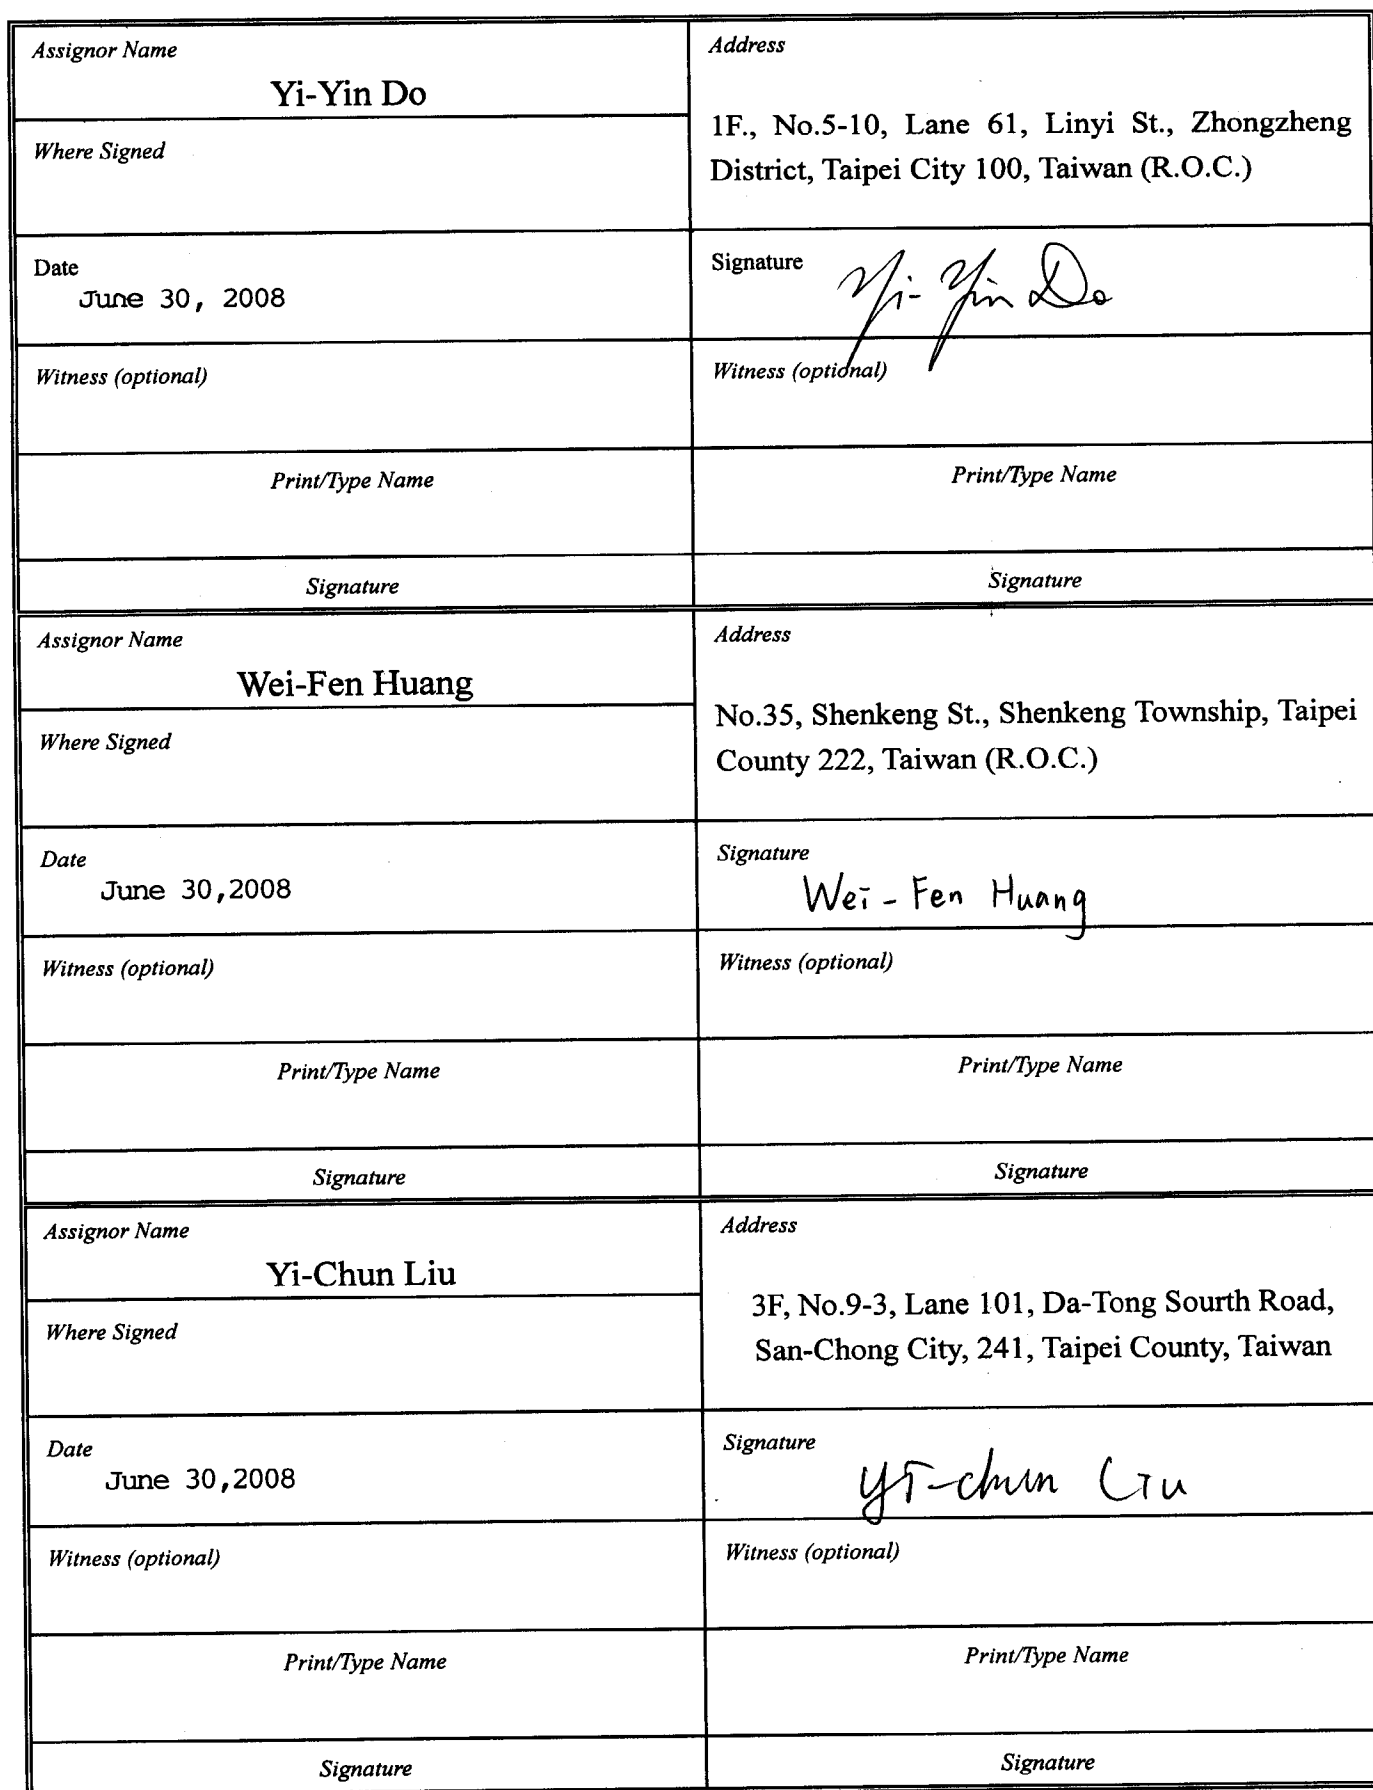 Assignor Name
Yi-Yin Do
Address
1F., No.5-10, Lane 61, Linyi St., Zhongzheng
District, Taipei City 100, Taiwan (R.O.C.)
Where Signed
Date
June 30, 2008
Signature
Yi-Yin Do
Witness (optional)
Witness (optional)
Print/Type Name
Print/Type Name
Signature
Signature
Assignor Name
Wei-Fen Huang
Address
No.35, Shenkeng St., Shenkeng Township, Taipei
County 222, Taiwan (R.O.C.)
Where Signed
Date
June 30,2008
Signature
Wei-Fen Huang
Witness (optional)
Witness (optional)
Print/Type Name
Print/Type Name
Signature
Signature
Assignor Name
Yi-Chun Liu
Address
3F, No.9-3, Lane 101, Da-Tong Sourth Road,
San-Chong City, 241, Taipei County, Taiwan
Where Signed
Date
June 30,2008
Signature
Yi-chun Liu
Witness (optional)
Witness (optional)
Print/Type Name
Print/Type Name
Signature
Signature